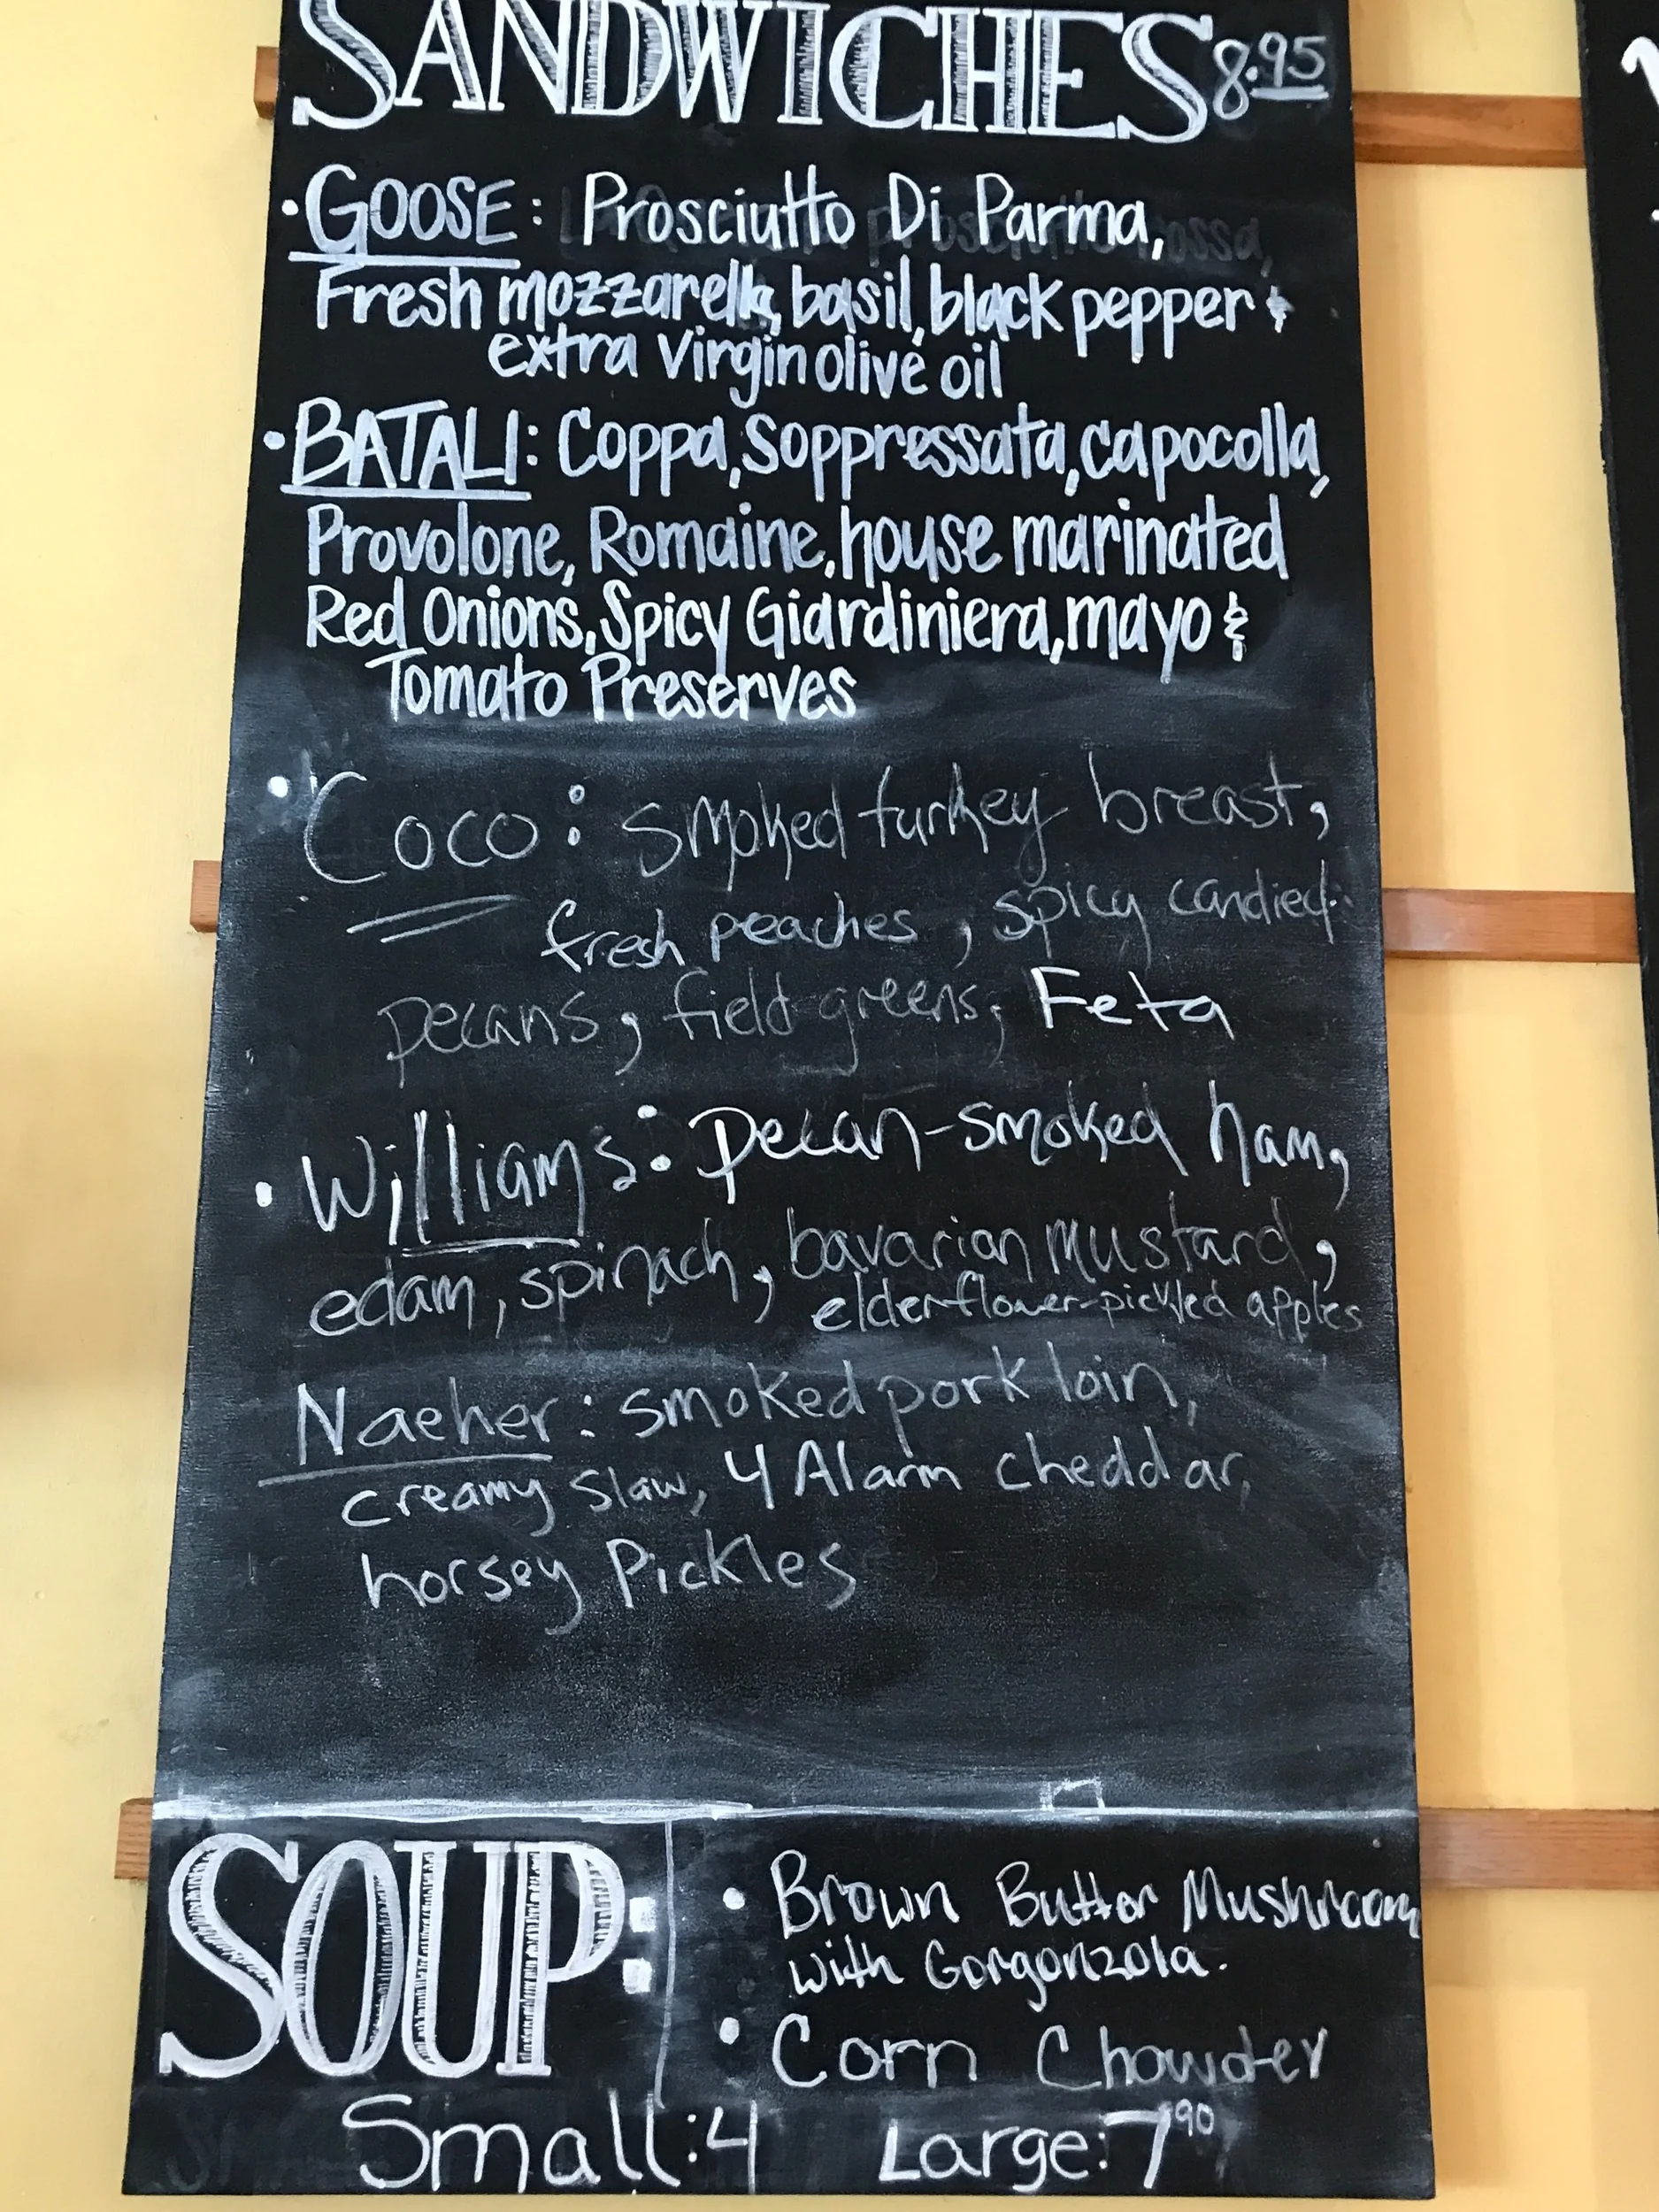 SANDWICHES 8.95
• GOOSE: Prosciutto Di Parma,
Fresh mozzarella, basil, black pepper &
extra Virgin olive oil
• BATALI: Coppa, Soppressata, capocolla,
Provolone, Romaine, house marinated
Red Onions, Spicy Giardiniera, mayo &
Tomato Preserves
• Coco: smoked turkey breast,
fresh peaches, spicy candied
pecans, field greens, Feta
• Williams: Pecan-smoked ham,
edam, spinach, bavarian mustard,
elderflower-pickled apples
Naeher: smoked pork loin,
creamy slaw, 4 Alarm cheddar,
horsey Pickles
SOUP:
• Brown Butter Mushroom
with Gorgonzola.
• Corn Chowder
Small: 4 Large: 7.90